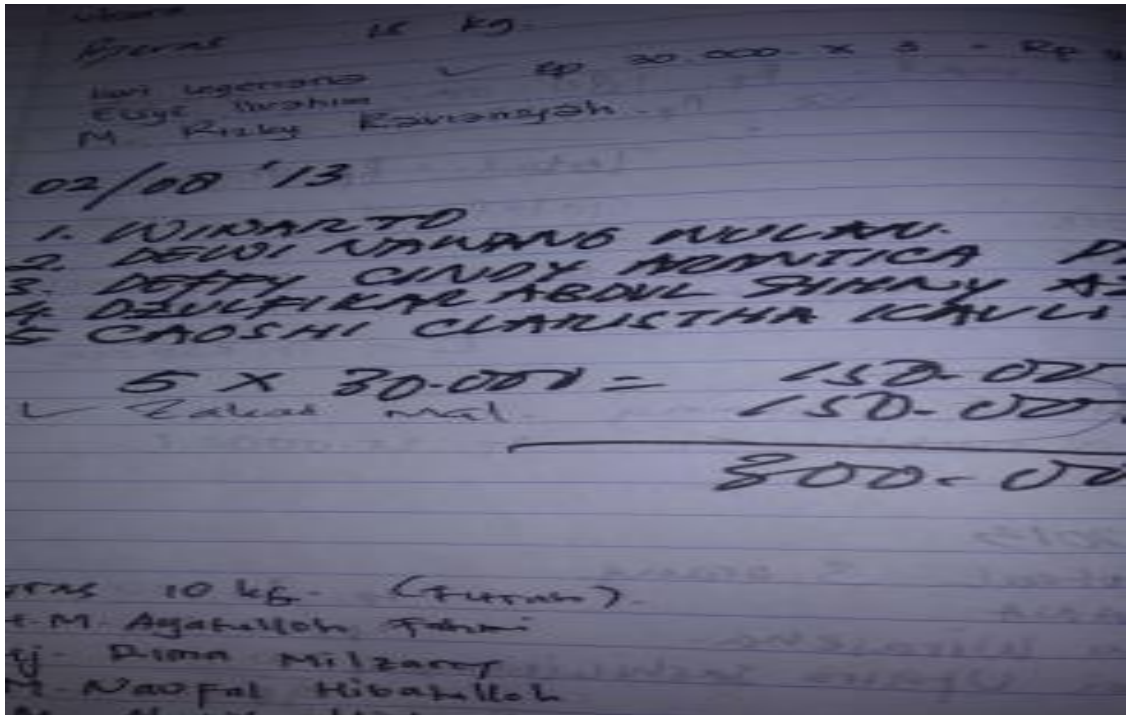 Beras 15 kg.
Hari Legersana ✓ Rp 30.000 x 3 = Rp
Eligi Ibrahim
M. Rizky Raviansyah
02/08 '13
1. WINARTO
2. DEWI NAWANG WULAN.
3. DEFFY CINDY ARANTICA
4. DZULFIKAR ABDUL
5 CAOSHI CLARISTHA KAULI
5 X 30.000 = 150.000
✓ Zakat mal. 150.000
300.00
10 kg. (Fitrah).
M. Ayatulloh Fahmi
Rima Milzamy
M. Naufal Hibatulloh